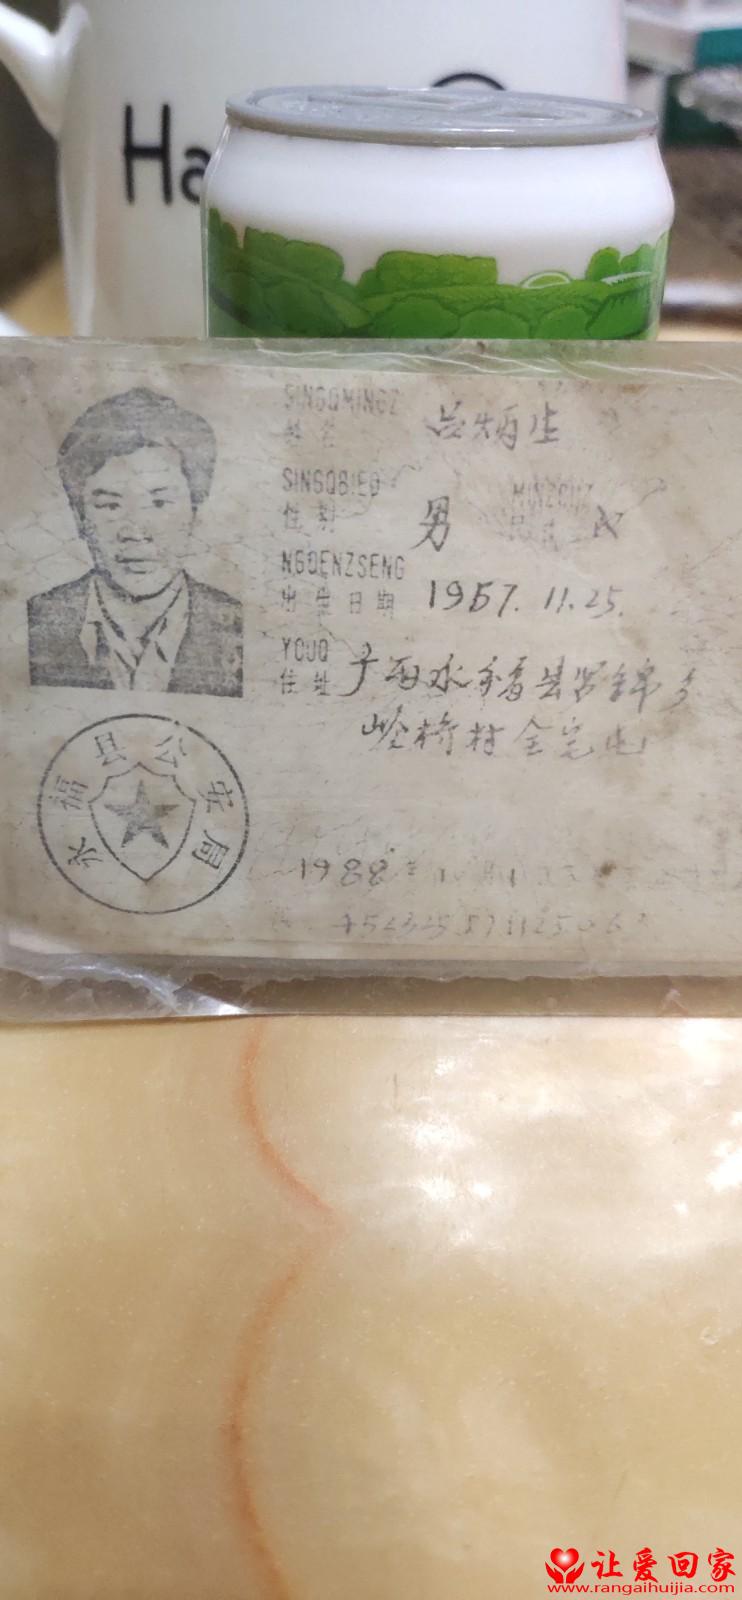 Ha
SINGQMINGZ
姓名 吕炳生
SINGQBIED MINZCUZ
性别 男 民族 汉
NGOENZSENG
出生日期 1957.11.25.
YOUQ
住址 广西永福县罗锦乡
岭桥村全宅屯
永福县公安局
1988
让爱回家
www.rangaihuijia.com